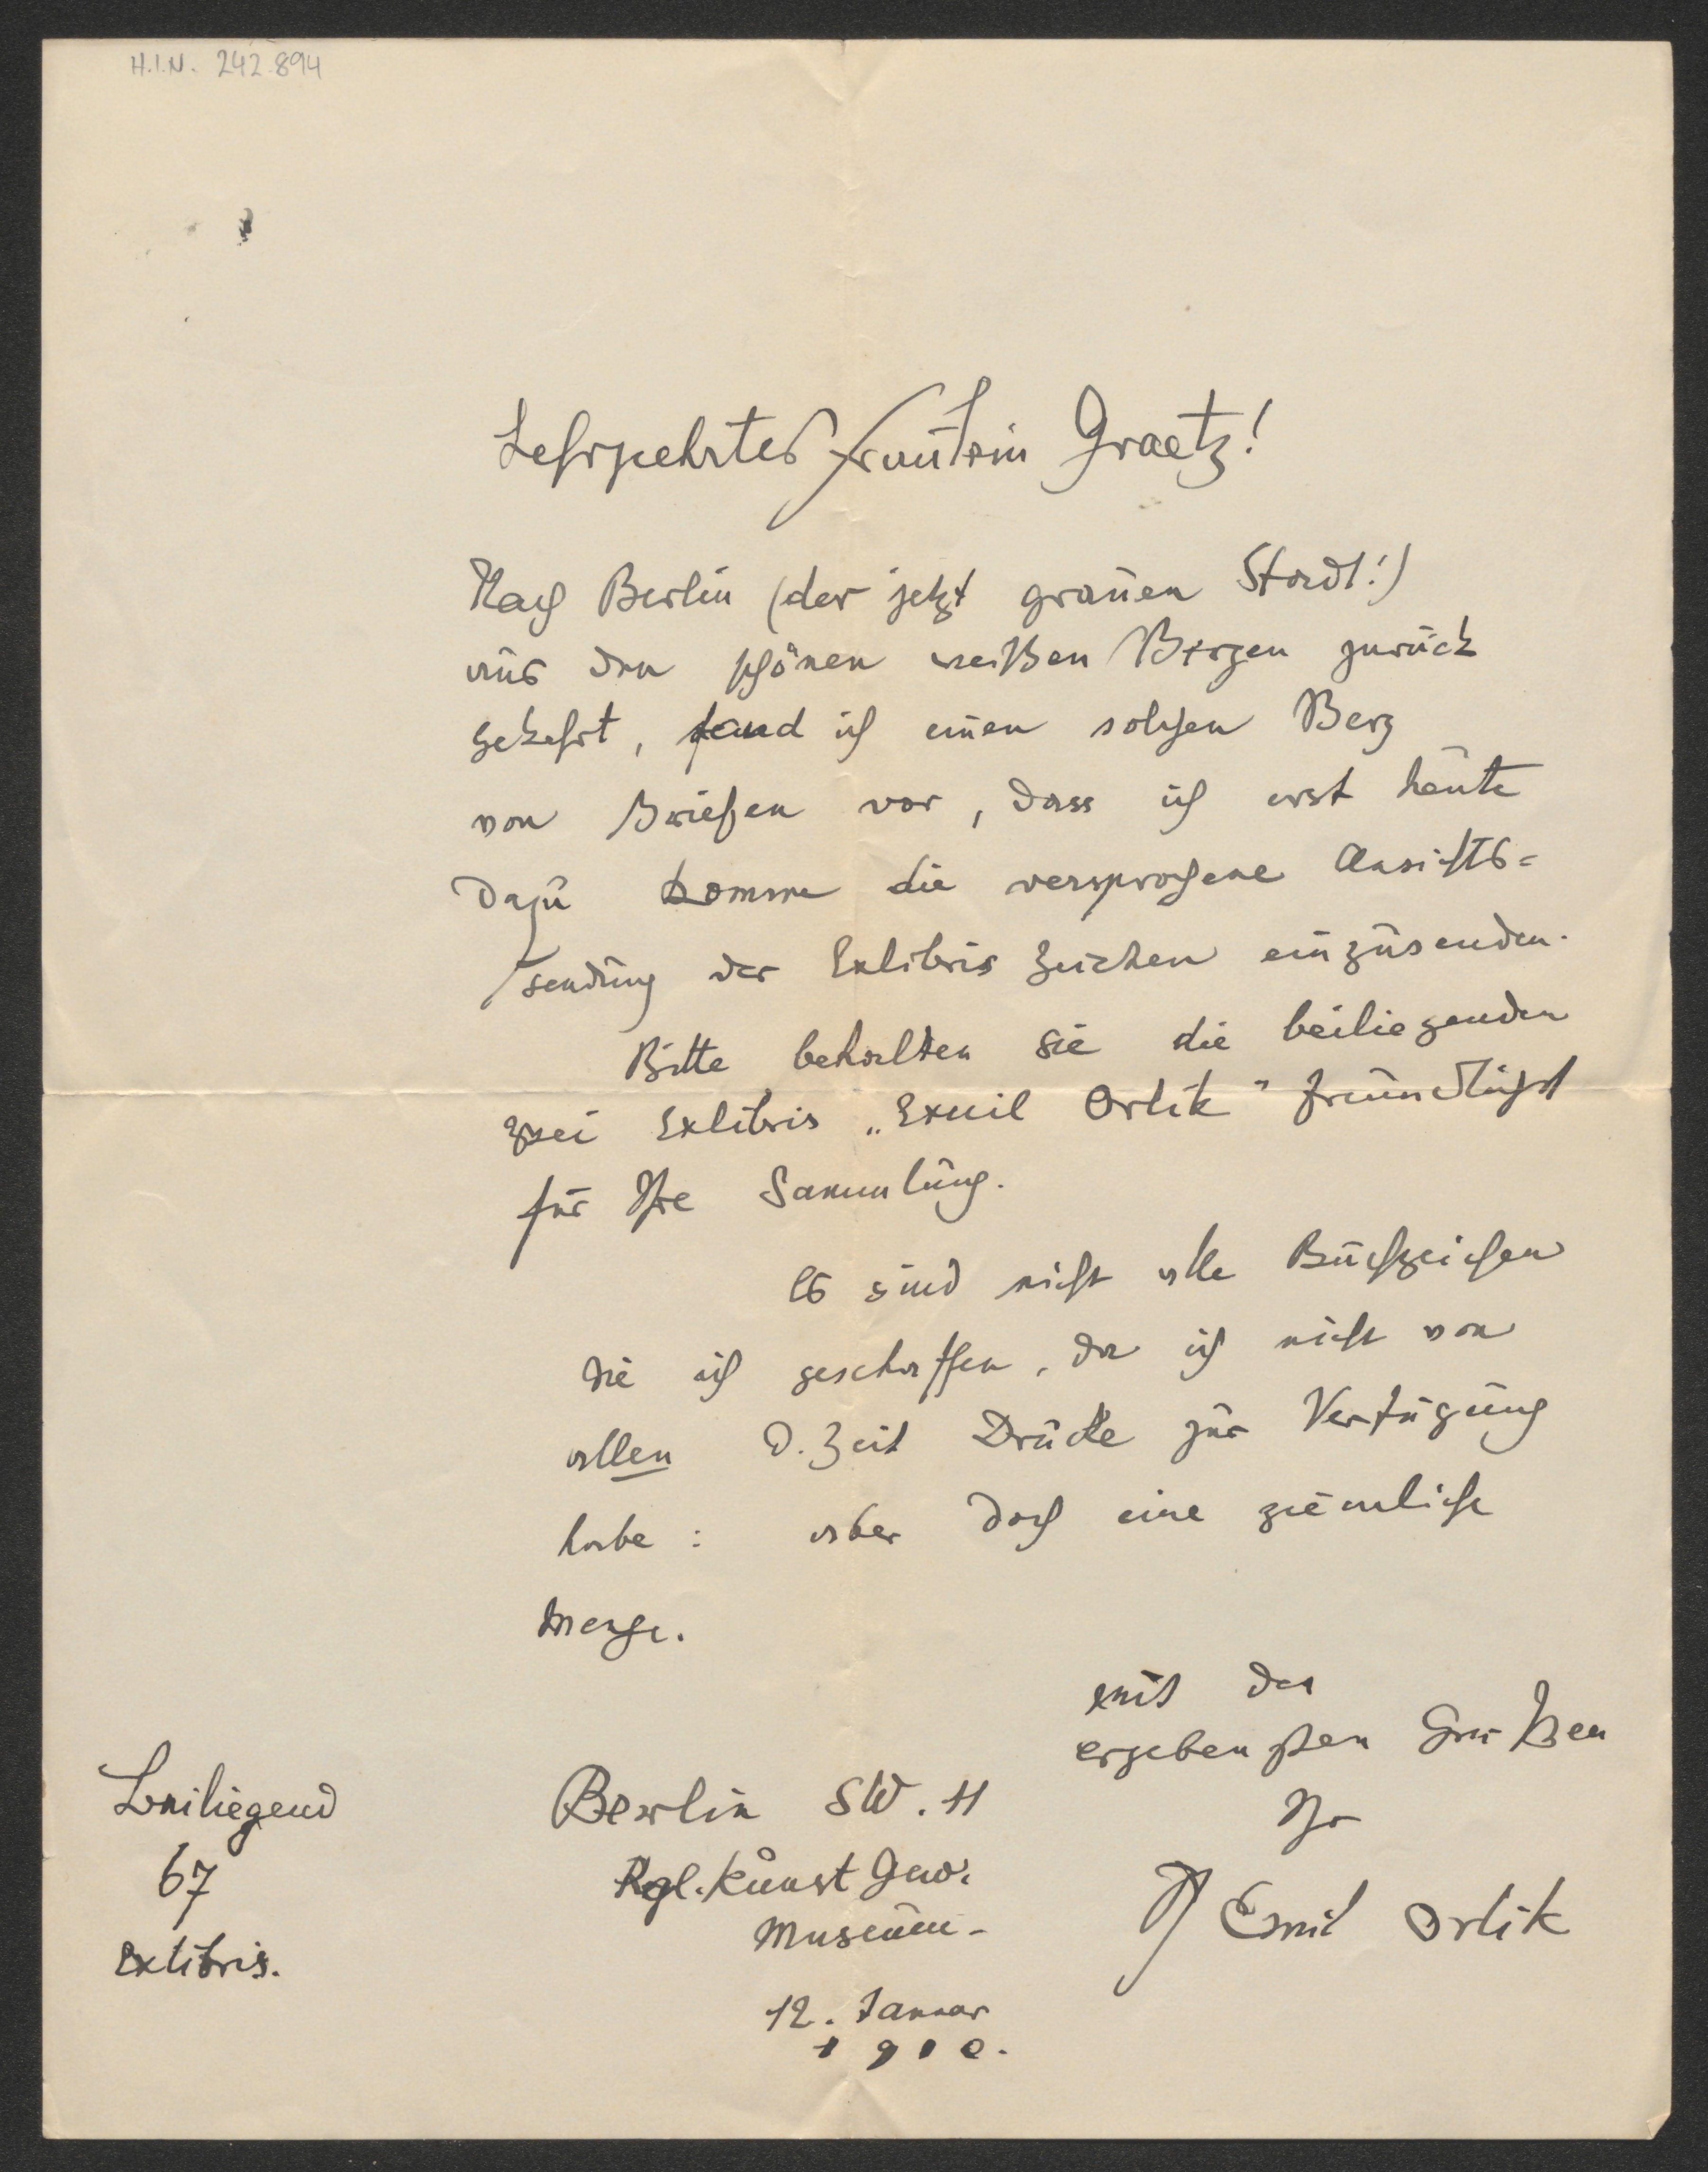 H.I.N. 242.894
Sehrgeehrtes Fräulein Graetz!
Nach Berlin (der jetzt grauen Stadt!)
aus den schönen weißen Bergen zurück
gekehrt, fand ich einen solchen Berg
von Briefen vor, dass ich erst heute
dazu komme die versprochene Ansichts=
sendung der Exlibris Zeichen einzusenden.
Bitte behalten Sie die beiliegenden
zwei Exlibris „Emil Orlik" freundlichst
für Ihre Sammlung.
Es sind nicht alle Buchzeichen
die ich geschaffen, da ich nicht von
allen d. Zeit Drucke zur Verfügung
habe : aber doch eine ziemliche
Menge.
mit den
ergebensten Grüßen
Ihr
Emil Orlik
Berlin SW. 11
Kgl. Kunst Gew.
Museum -
12. Januar
1910.
Beiliegend
67
Exlibris.